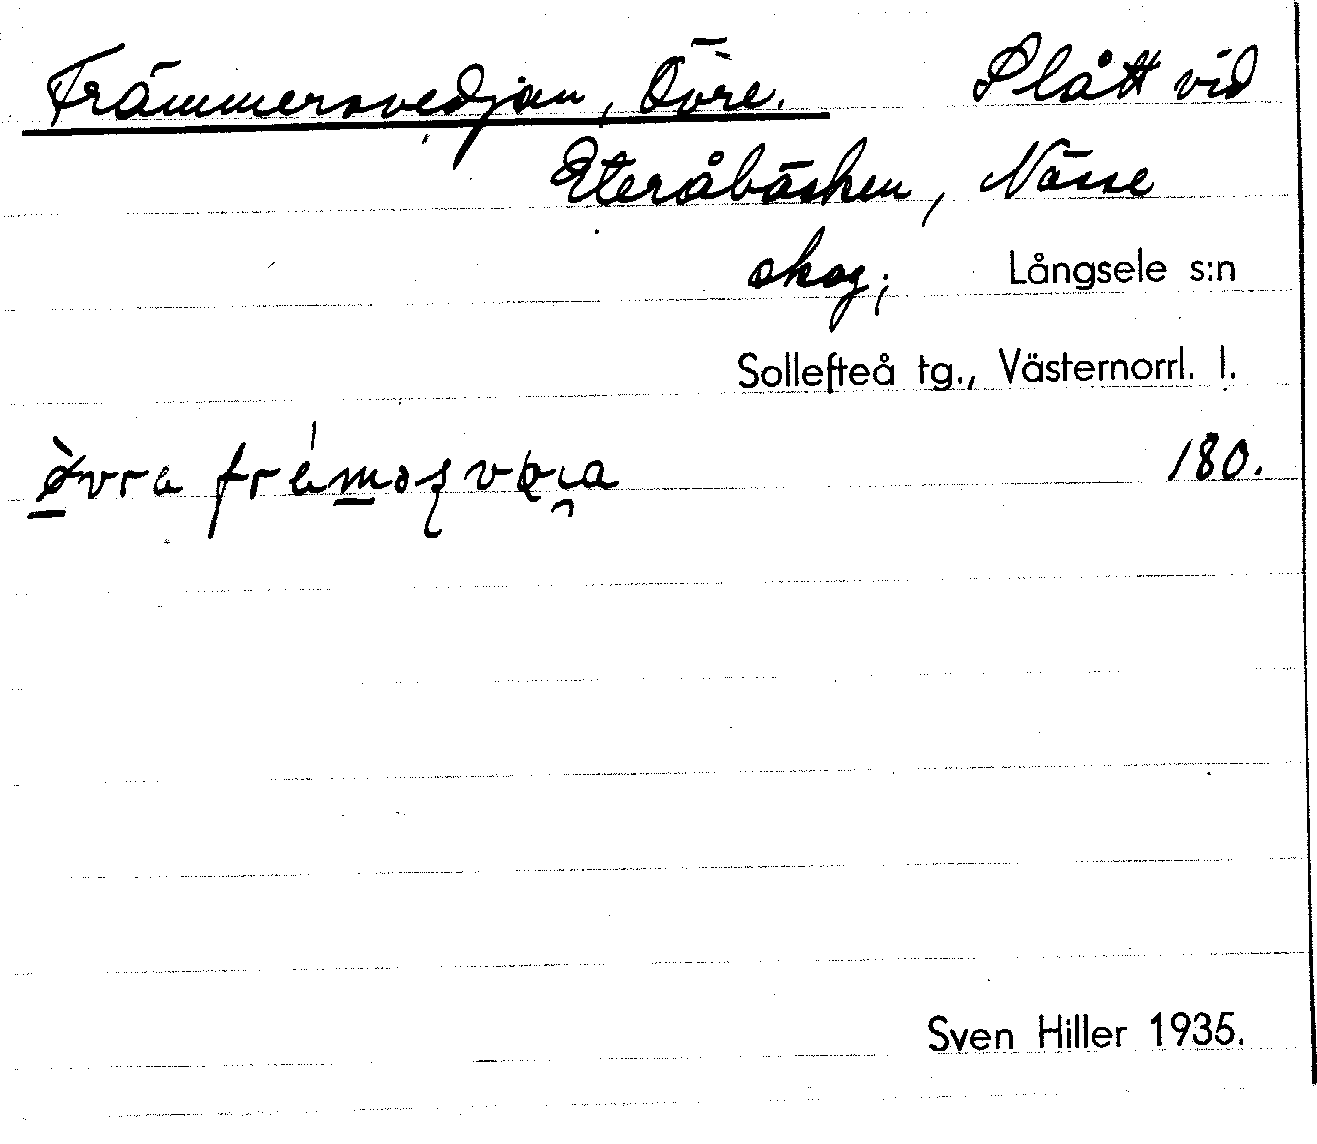 Främmersvedjan, Övre. Slått vid
Eteråbäcken, Nässe
skog; Långsele s:n
Sollefteå tg., Västernorrl. l.
180.
Sven Hiller 1935.